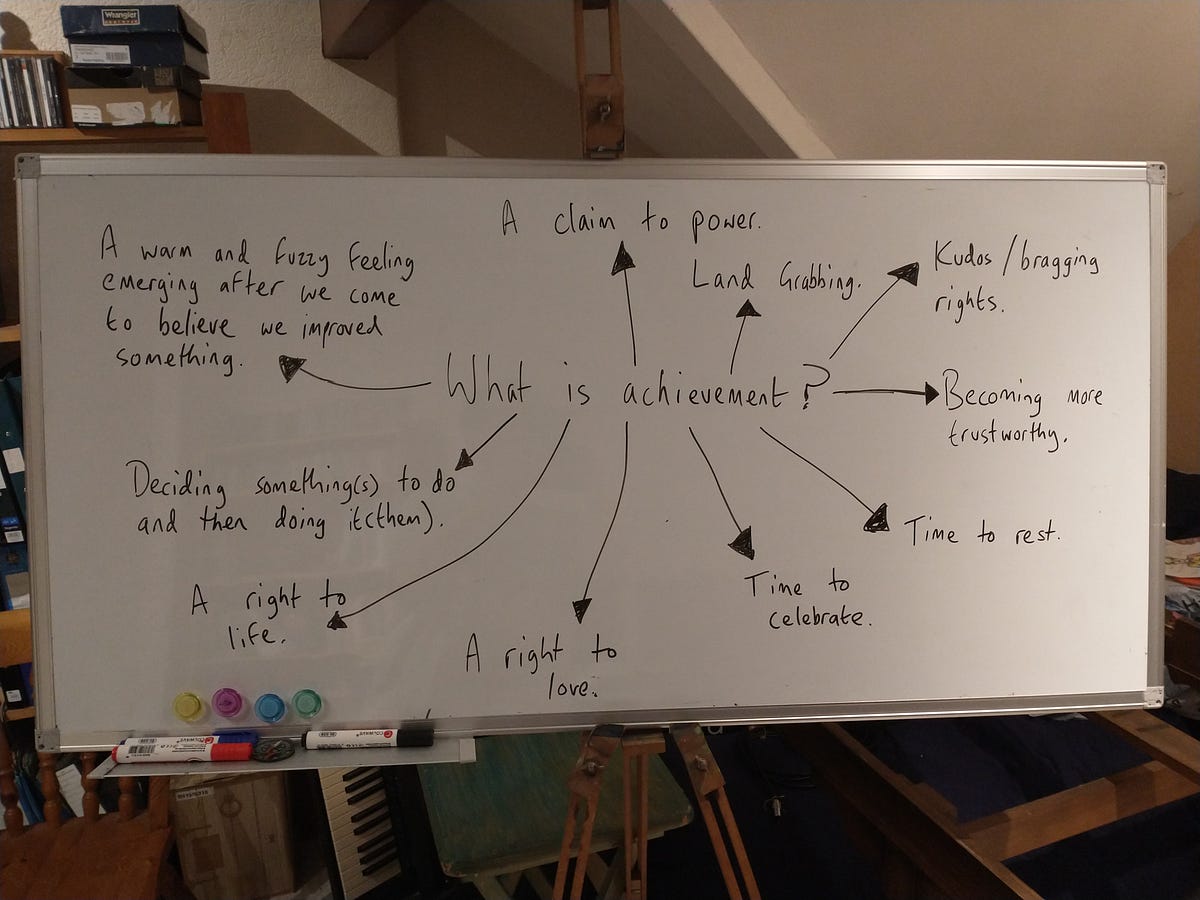 Wrangler
A claim to power.
A warm and fuzzy feeling
emerging after we come
to believe we improved
something.
Land Grabbing.
Kudos/bragging
rights.
What is achievement?
Becoming more
trustworthy.
Deciding something(s) to do
and then doing it(them).
Time to rest.
A right to
life.
Time to
celebrate.
A right to
love.